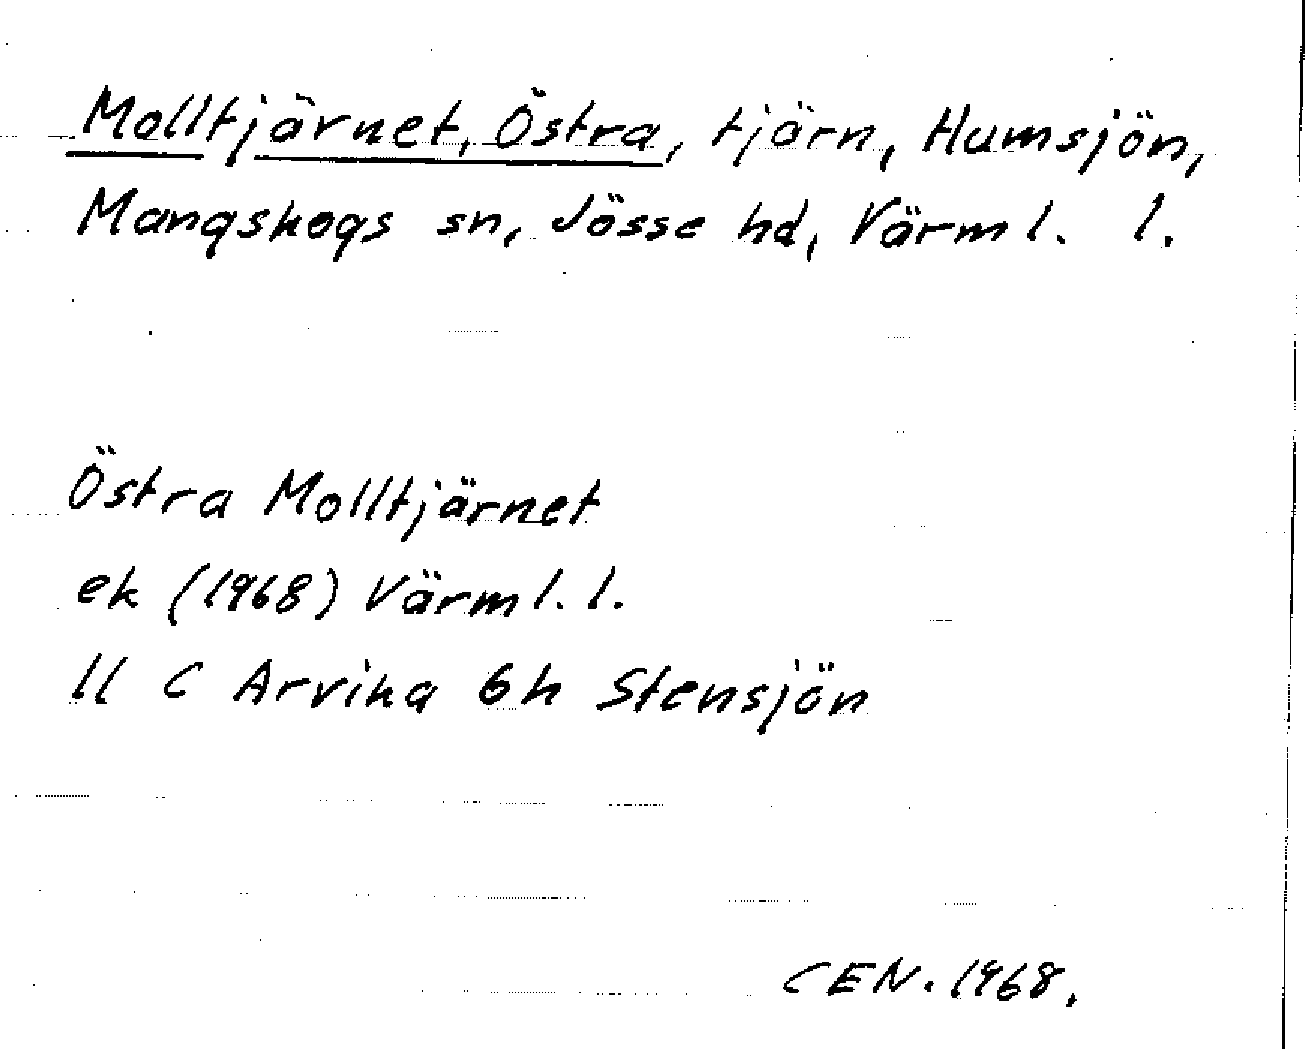 Molltjärnet, Östra, tjärn, Humsjön,
Mangskogs sn, Jösse hd, Värml. l.
Östra Molltjärnet
ek (1968) Värml. l.
11 C Arvika 6h Stensjön
CEN. 1968.